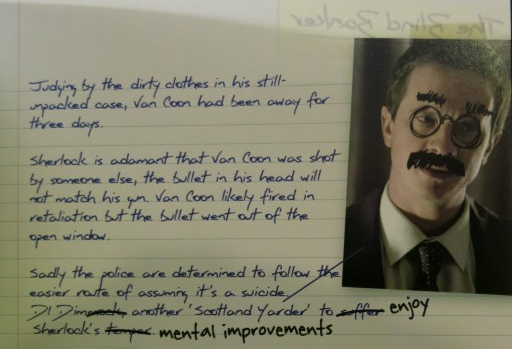 The Blind Banker
Judging by the dirty clothes in his still-
unpacked case, Van Coon had been away for
three days.
Sherlock is adamant that Van Coon was shot
by someone else, the bullet in his head will
not match his gun. Van Coon likely fired in
retaliation but the bullet went out of the
open window.
Sadly the police are determined to follow the
easier route of assuming it's a suicide.
DI Dimmock, another 'Scotland Yarder' to suffer enjoy
Sherlock's temper. mental improvements